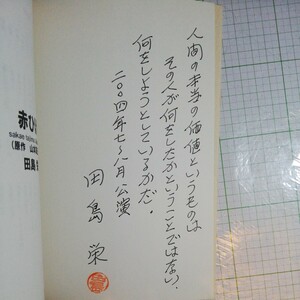 人間の本当の価値というものは
その人が何をしたかということではない、
何をしようとしているかだ。
二〇〇四年七〜八月公演
田島栄
赤ひ
sakae tajima
(原作 山本
田島